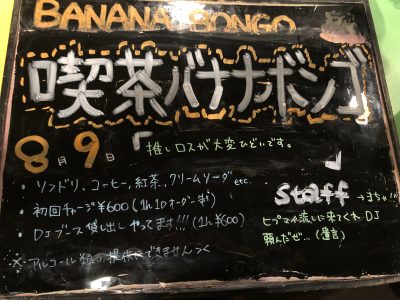 BANANA BONGO
喫茶バナナボンゴ
8月9日「推しロスが大変ひどいです。」
・ソフドリ、コーヒー、紅茶、クリームソーダ etc.
・初回チャージ¥600(1h,1Dオーダー制)
・DJブース貸し出しやってます!!!(1h ¥600)
※アルコール類の提供はできませんっ
staff→まちゃ!!!
ヒプマイ流しに来てくれDJ
頼んだぜ…(遺言)